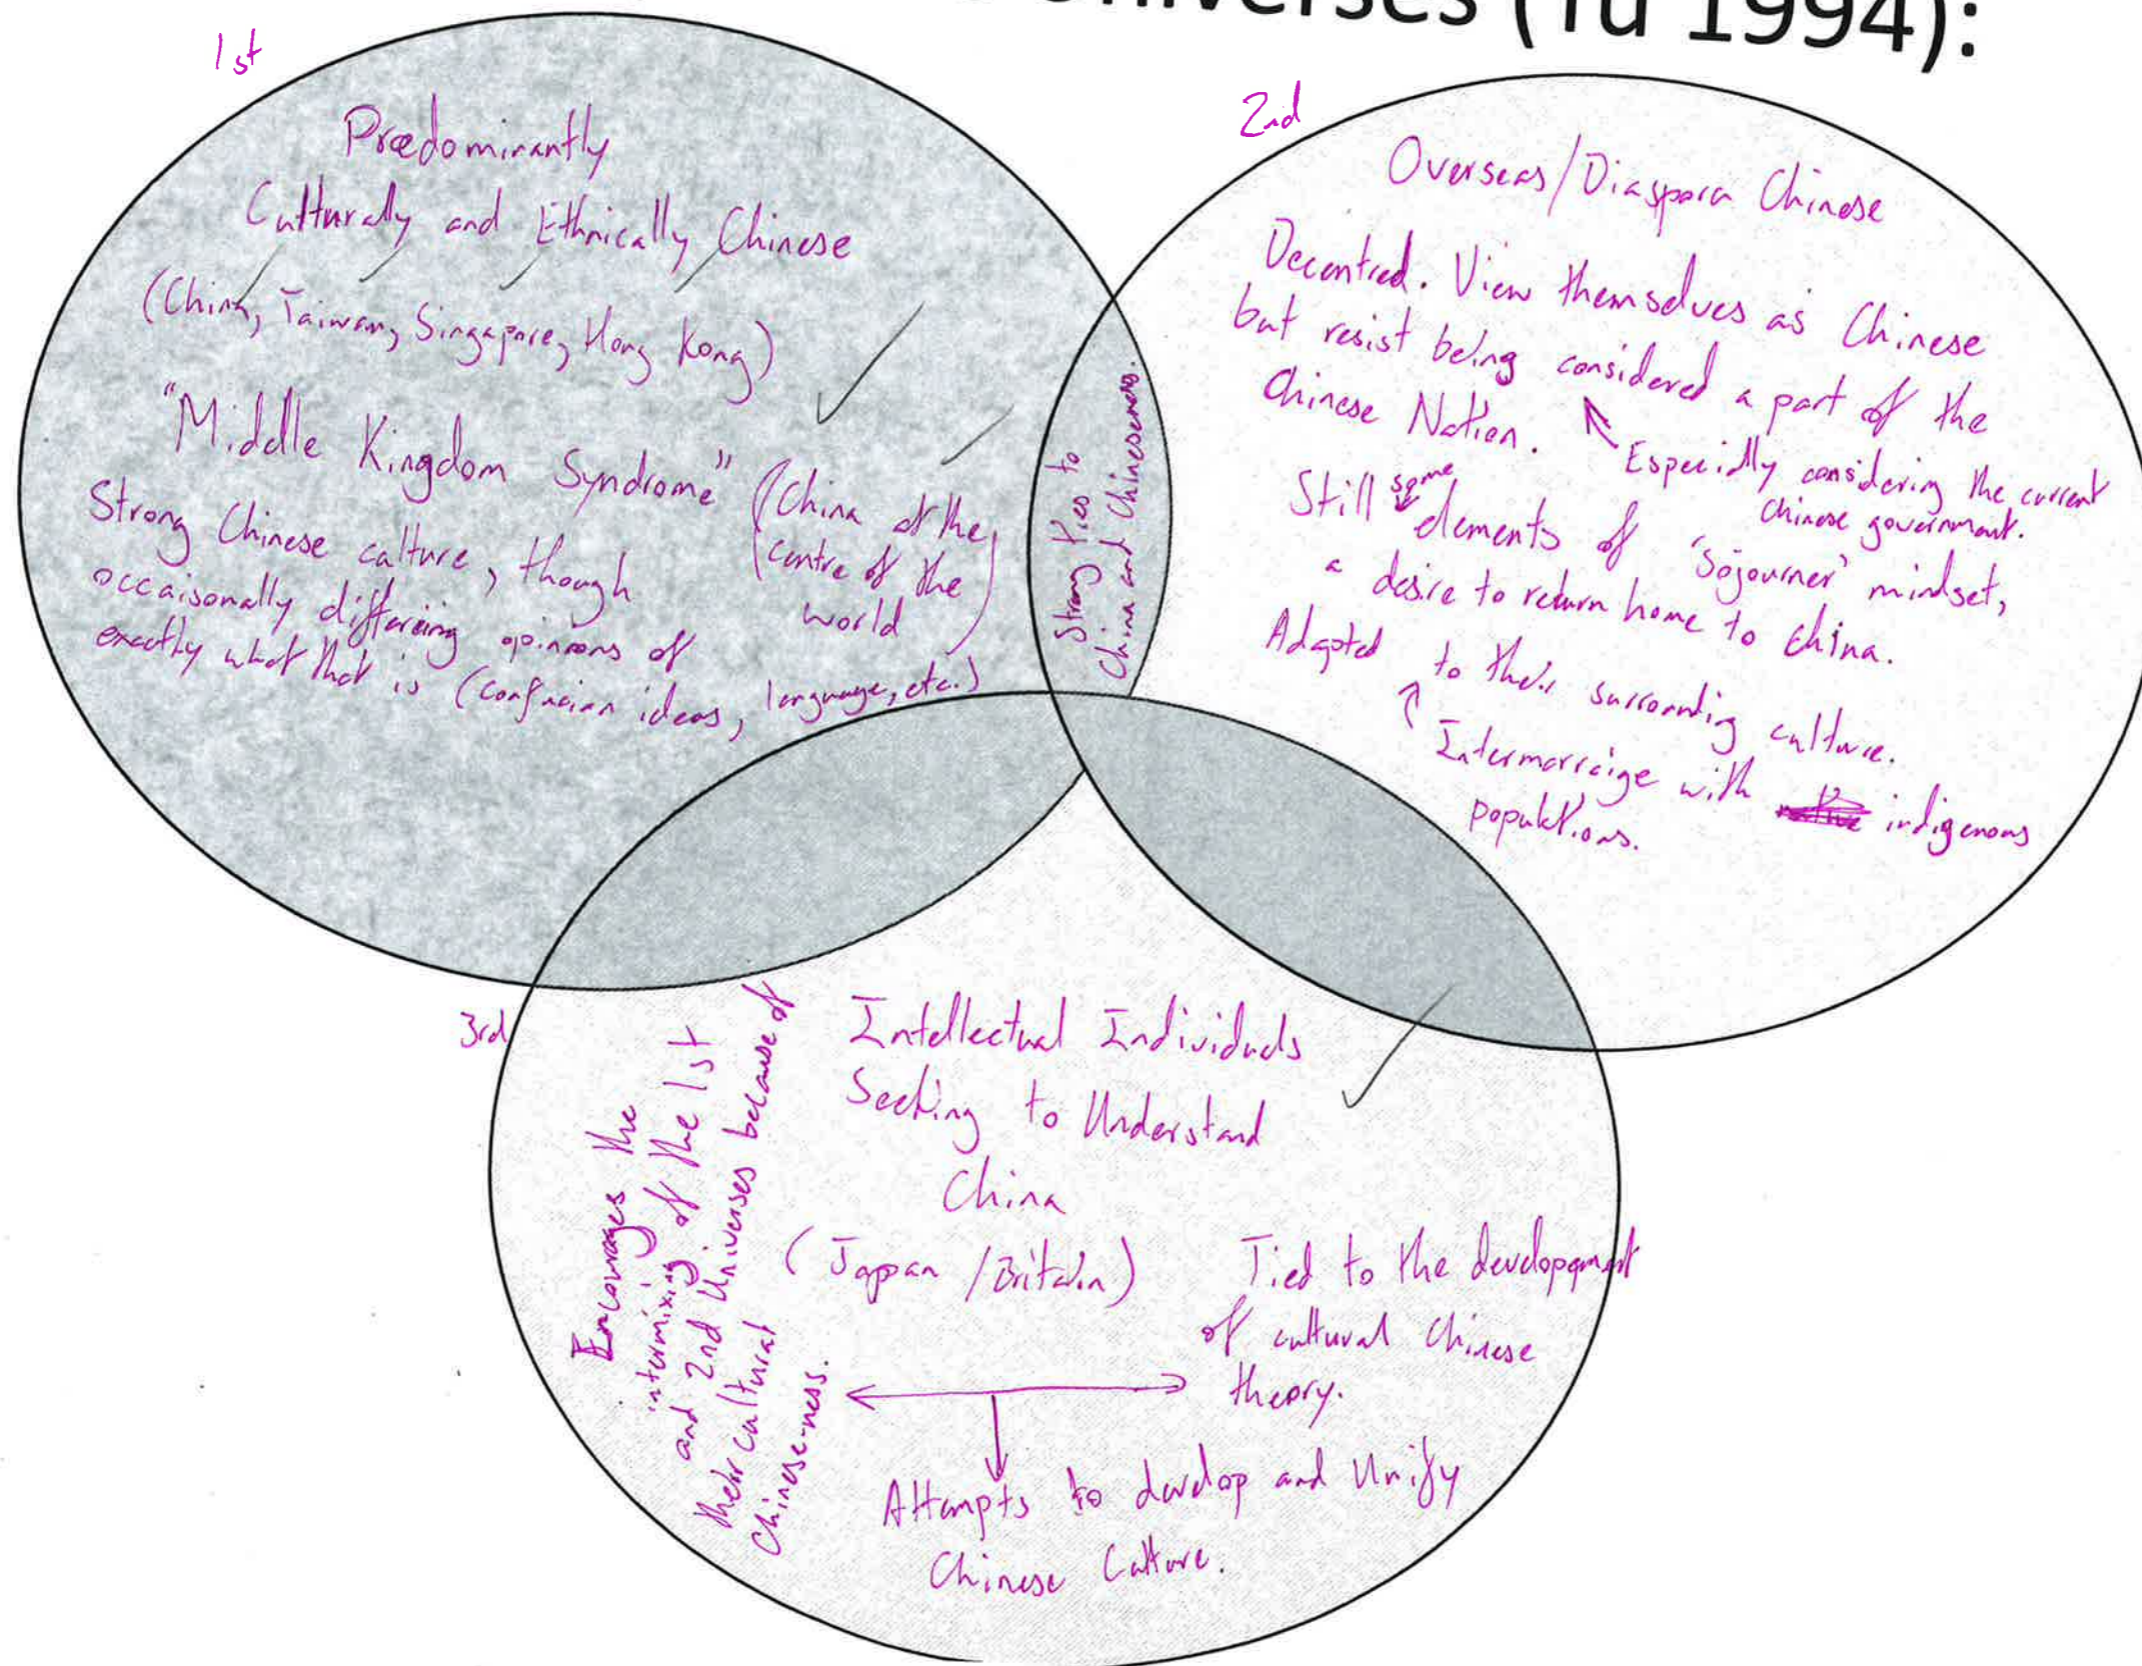 Universes (Tu 1994):
1st
Prædominantly
Culturally and Ethnically Chinese
(China, Taiwan, Singapore, Hong Kong)
"Middle Kingdom Syndrome"
(China at the
centre of the
world)
Strong Chinese culture, though
occaisonally differing opinions of
exactly what that is (confucian ideas, language, etc.)
Strong Ties to
China and Chineseness.
2nd
Overseas/Diaspora Chinese
Decentred. View themselves as Chinese
but resist being considered a part of the
Chinese Nation.
Especially considering the current
Chinese government.
Still some elements of 'Sojourner' mindset,
a desire to return home to China.
Adapted to their surrounding culture.
Intermarraige with indigenous
populations.
3rd
Intellectual Individuals
Seeking to Understand
China
(Japan / Britain)
Encourages the
intermixing of the 1st
and 2nd Universes because of
their cultural
Chinese-ness.
Tied to the development
of cultural Chinese
theory.
Attempts to develop and Unify
Chinese Culture.